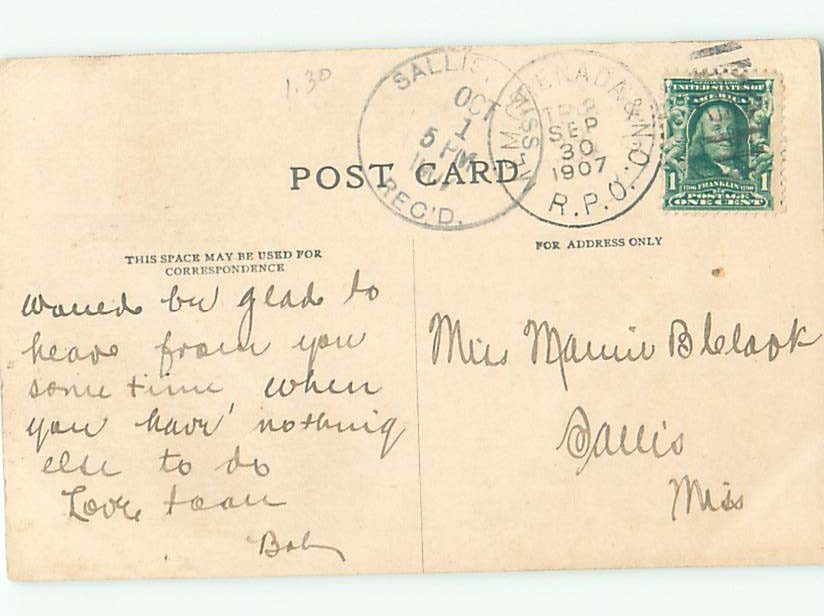 1.30
SALLIS,
MISS.
OCT
1
5 PM
REC'D.
SEP
30
1907
R.P.O.
UNITED STATES OF
AMERICA
1 FRANKLIN 1
POSTAGE
ONE CENT
POST CARD
THIS SPACE MAY BE USED FOR
CORRESPONDENCE
FOR ADDRESS ONLY
Would be glad to
hear from you
some time when
you have nothing
else to do
Love to all
Miss Mamie B
Sallis
Miss